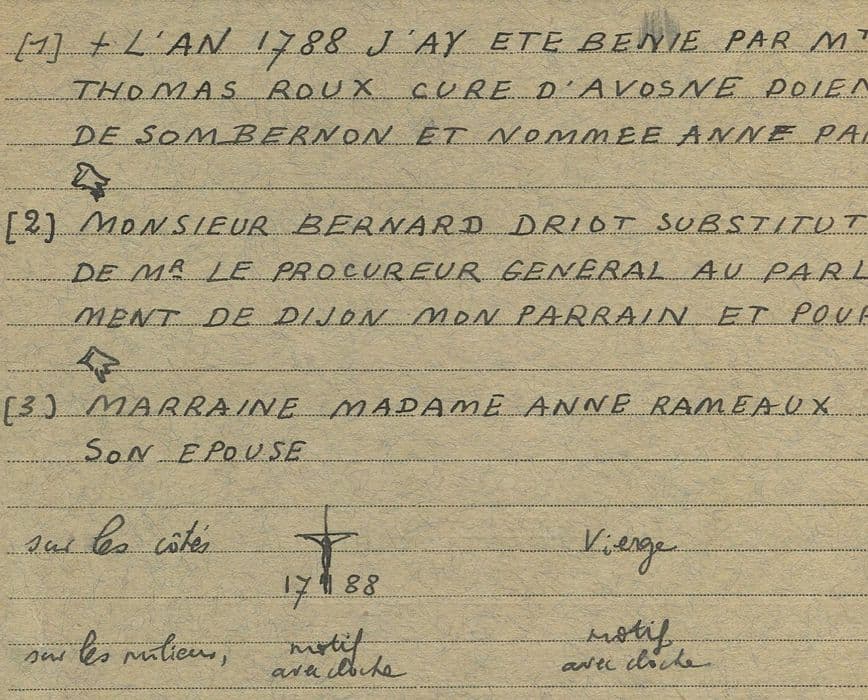 [1] + L'AN 1788 J'AY ETE BENIE PAR MR
THOMAS ROUX CURE D'AVOSNE DOIEN
DE SOMBERNON ET NOMMEE ANNE PAR
[2] MONSIEUR BERNARD DRIOT SUBSTITUT
DE MR LE PROCUREUR GENERAL AU PARLE
MENT DE DIJON MON PARRAIN ET POUR
[3] MARRAINE MADAME ANNE RAMEAUX
SON EPOUSE
sur les côtés Vierge
17 88
sur les milieux, motif motif
avec cloche avec cloche